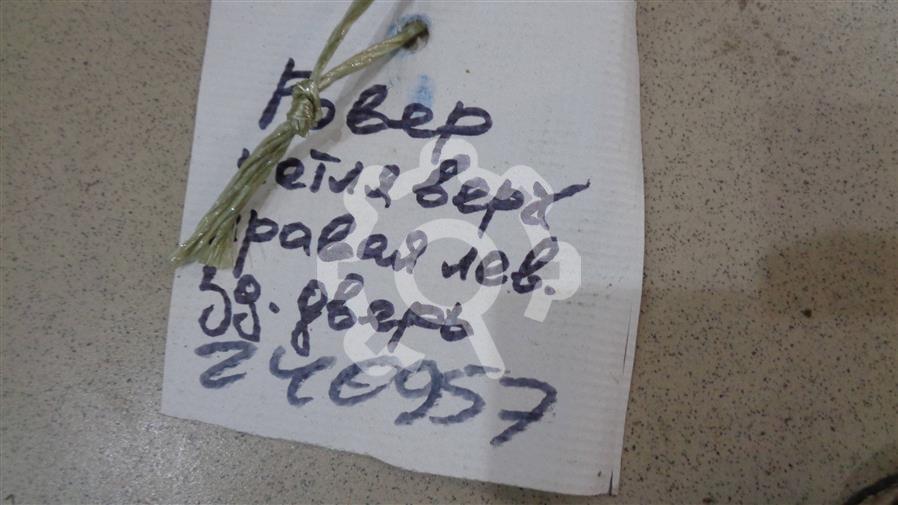 Ровер
петля верх
правая лев.
зд. дверь
240957